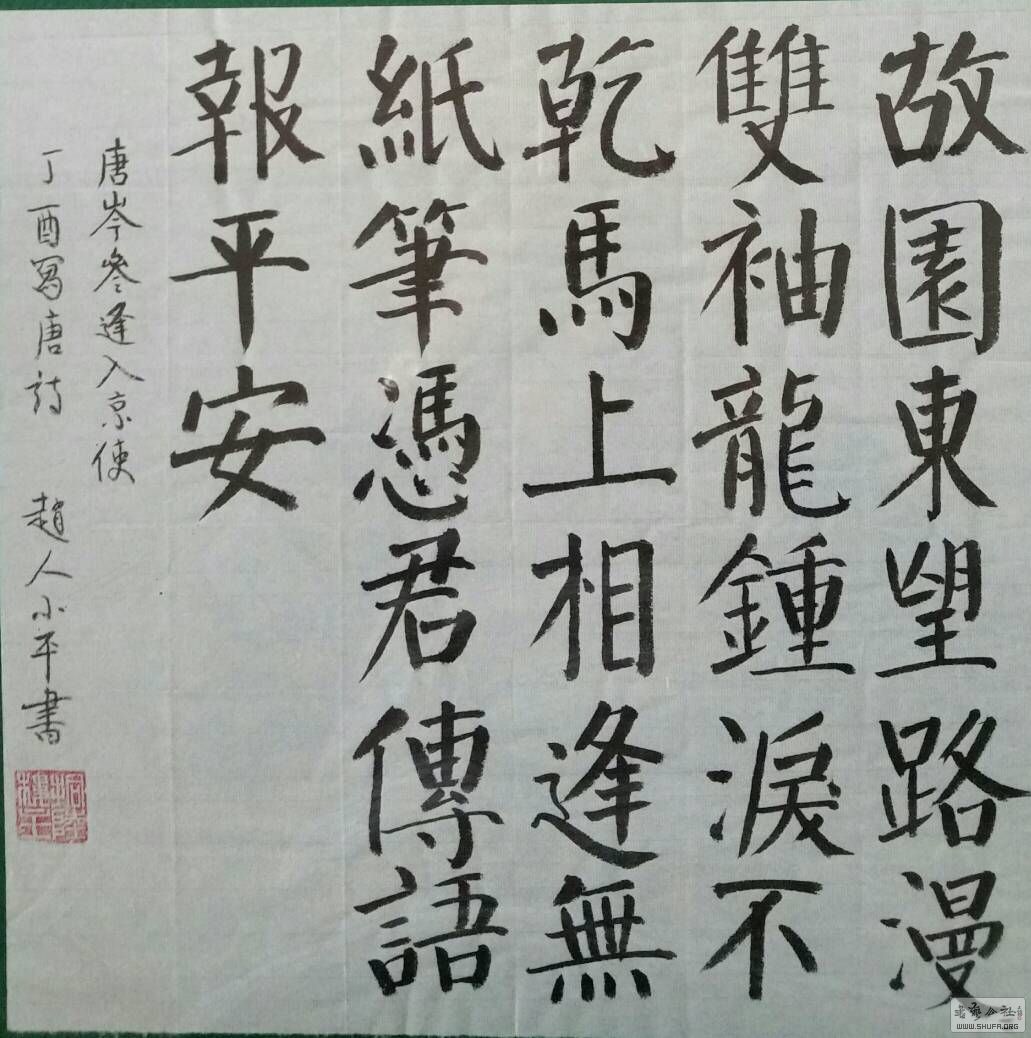 故園東望路漫
雙袖龍鍾淚不
乾馬上相逢無
紙筆憑君傳語
報平安
唐岑參逢入京使
丁酉写唐詩 趙人小平書
書法公社
WWW.SHUFA.ORG